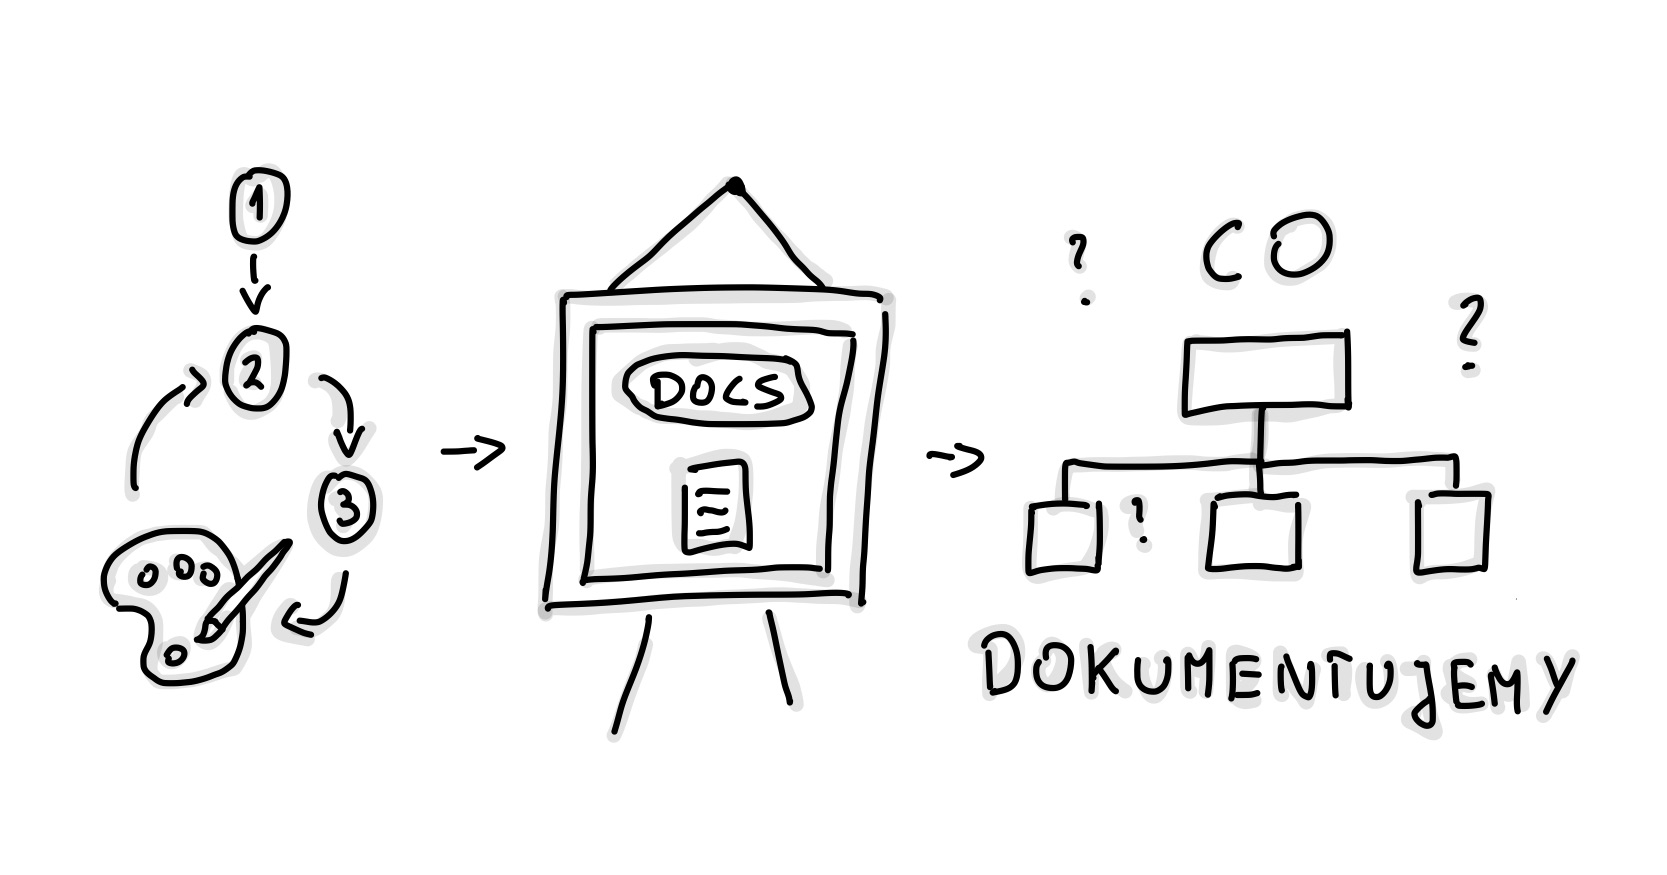 1
2
3
DOCS
CO
?
?
?
DOKUMENTUJEMY